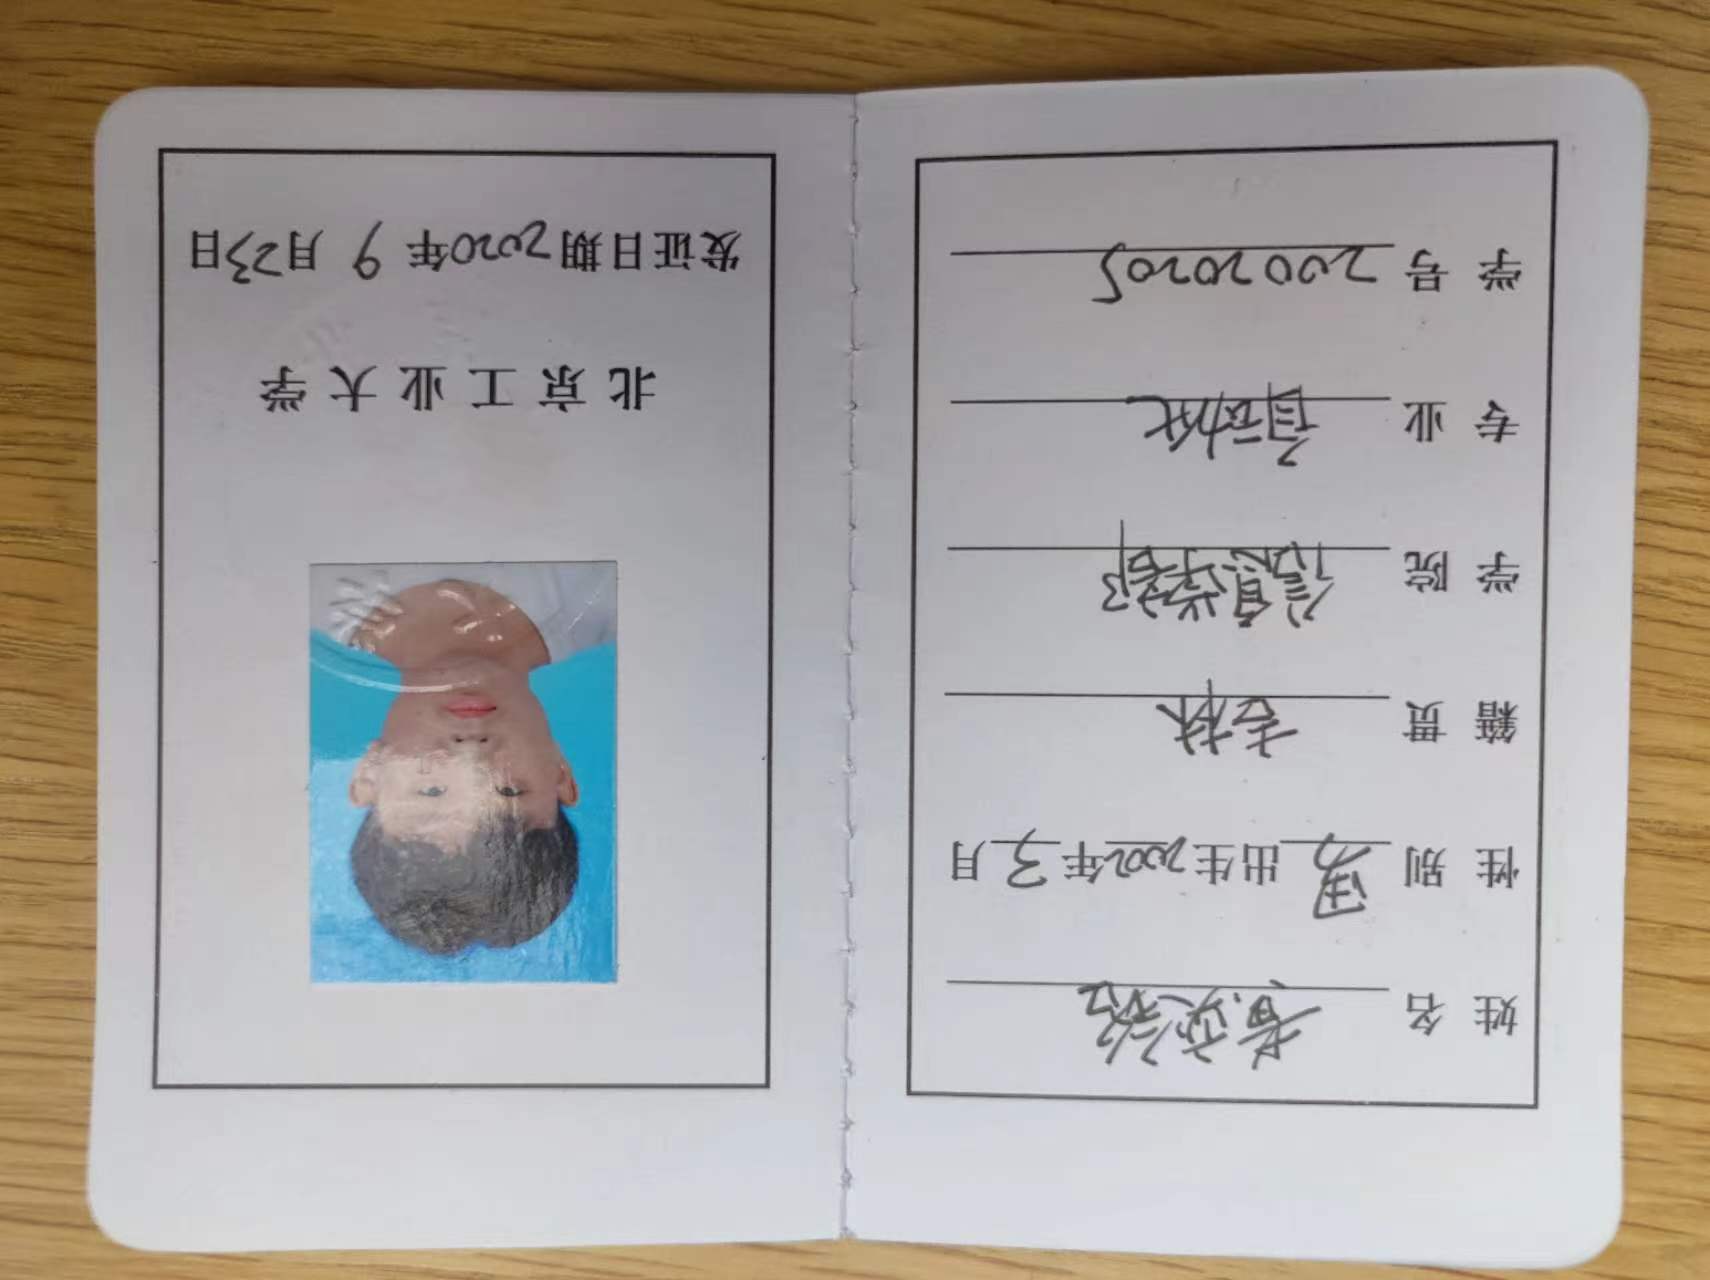 姓名 黄奕铭
性别 男 出生2002年3月
籍贯 吉林
学院 信息学部
专业 自动化
学号 20020205
北京工业大学
发证日期2020年9月23日